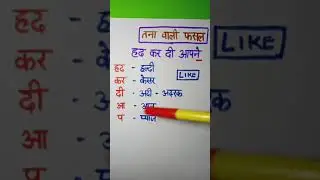 तना वाली फसल
हद कर दी आपने
LIKE
हद - हल्दी
कर - केसर
LIKE
दी - अदी - अदरक
आ - आलू
प - प्याज